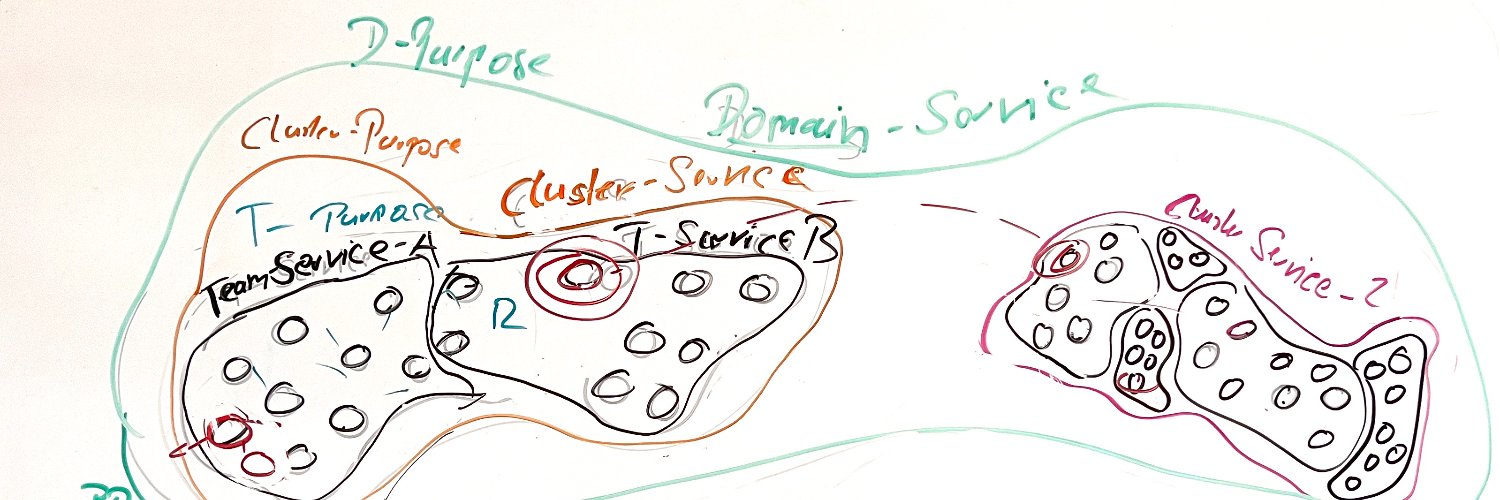 D-Purpose
Domain-Service
Cluster-Purpose
Cluster-Service
T-Purpose
T-Service B
Team Service-A
Cluster Service-2
R